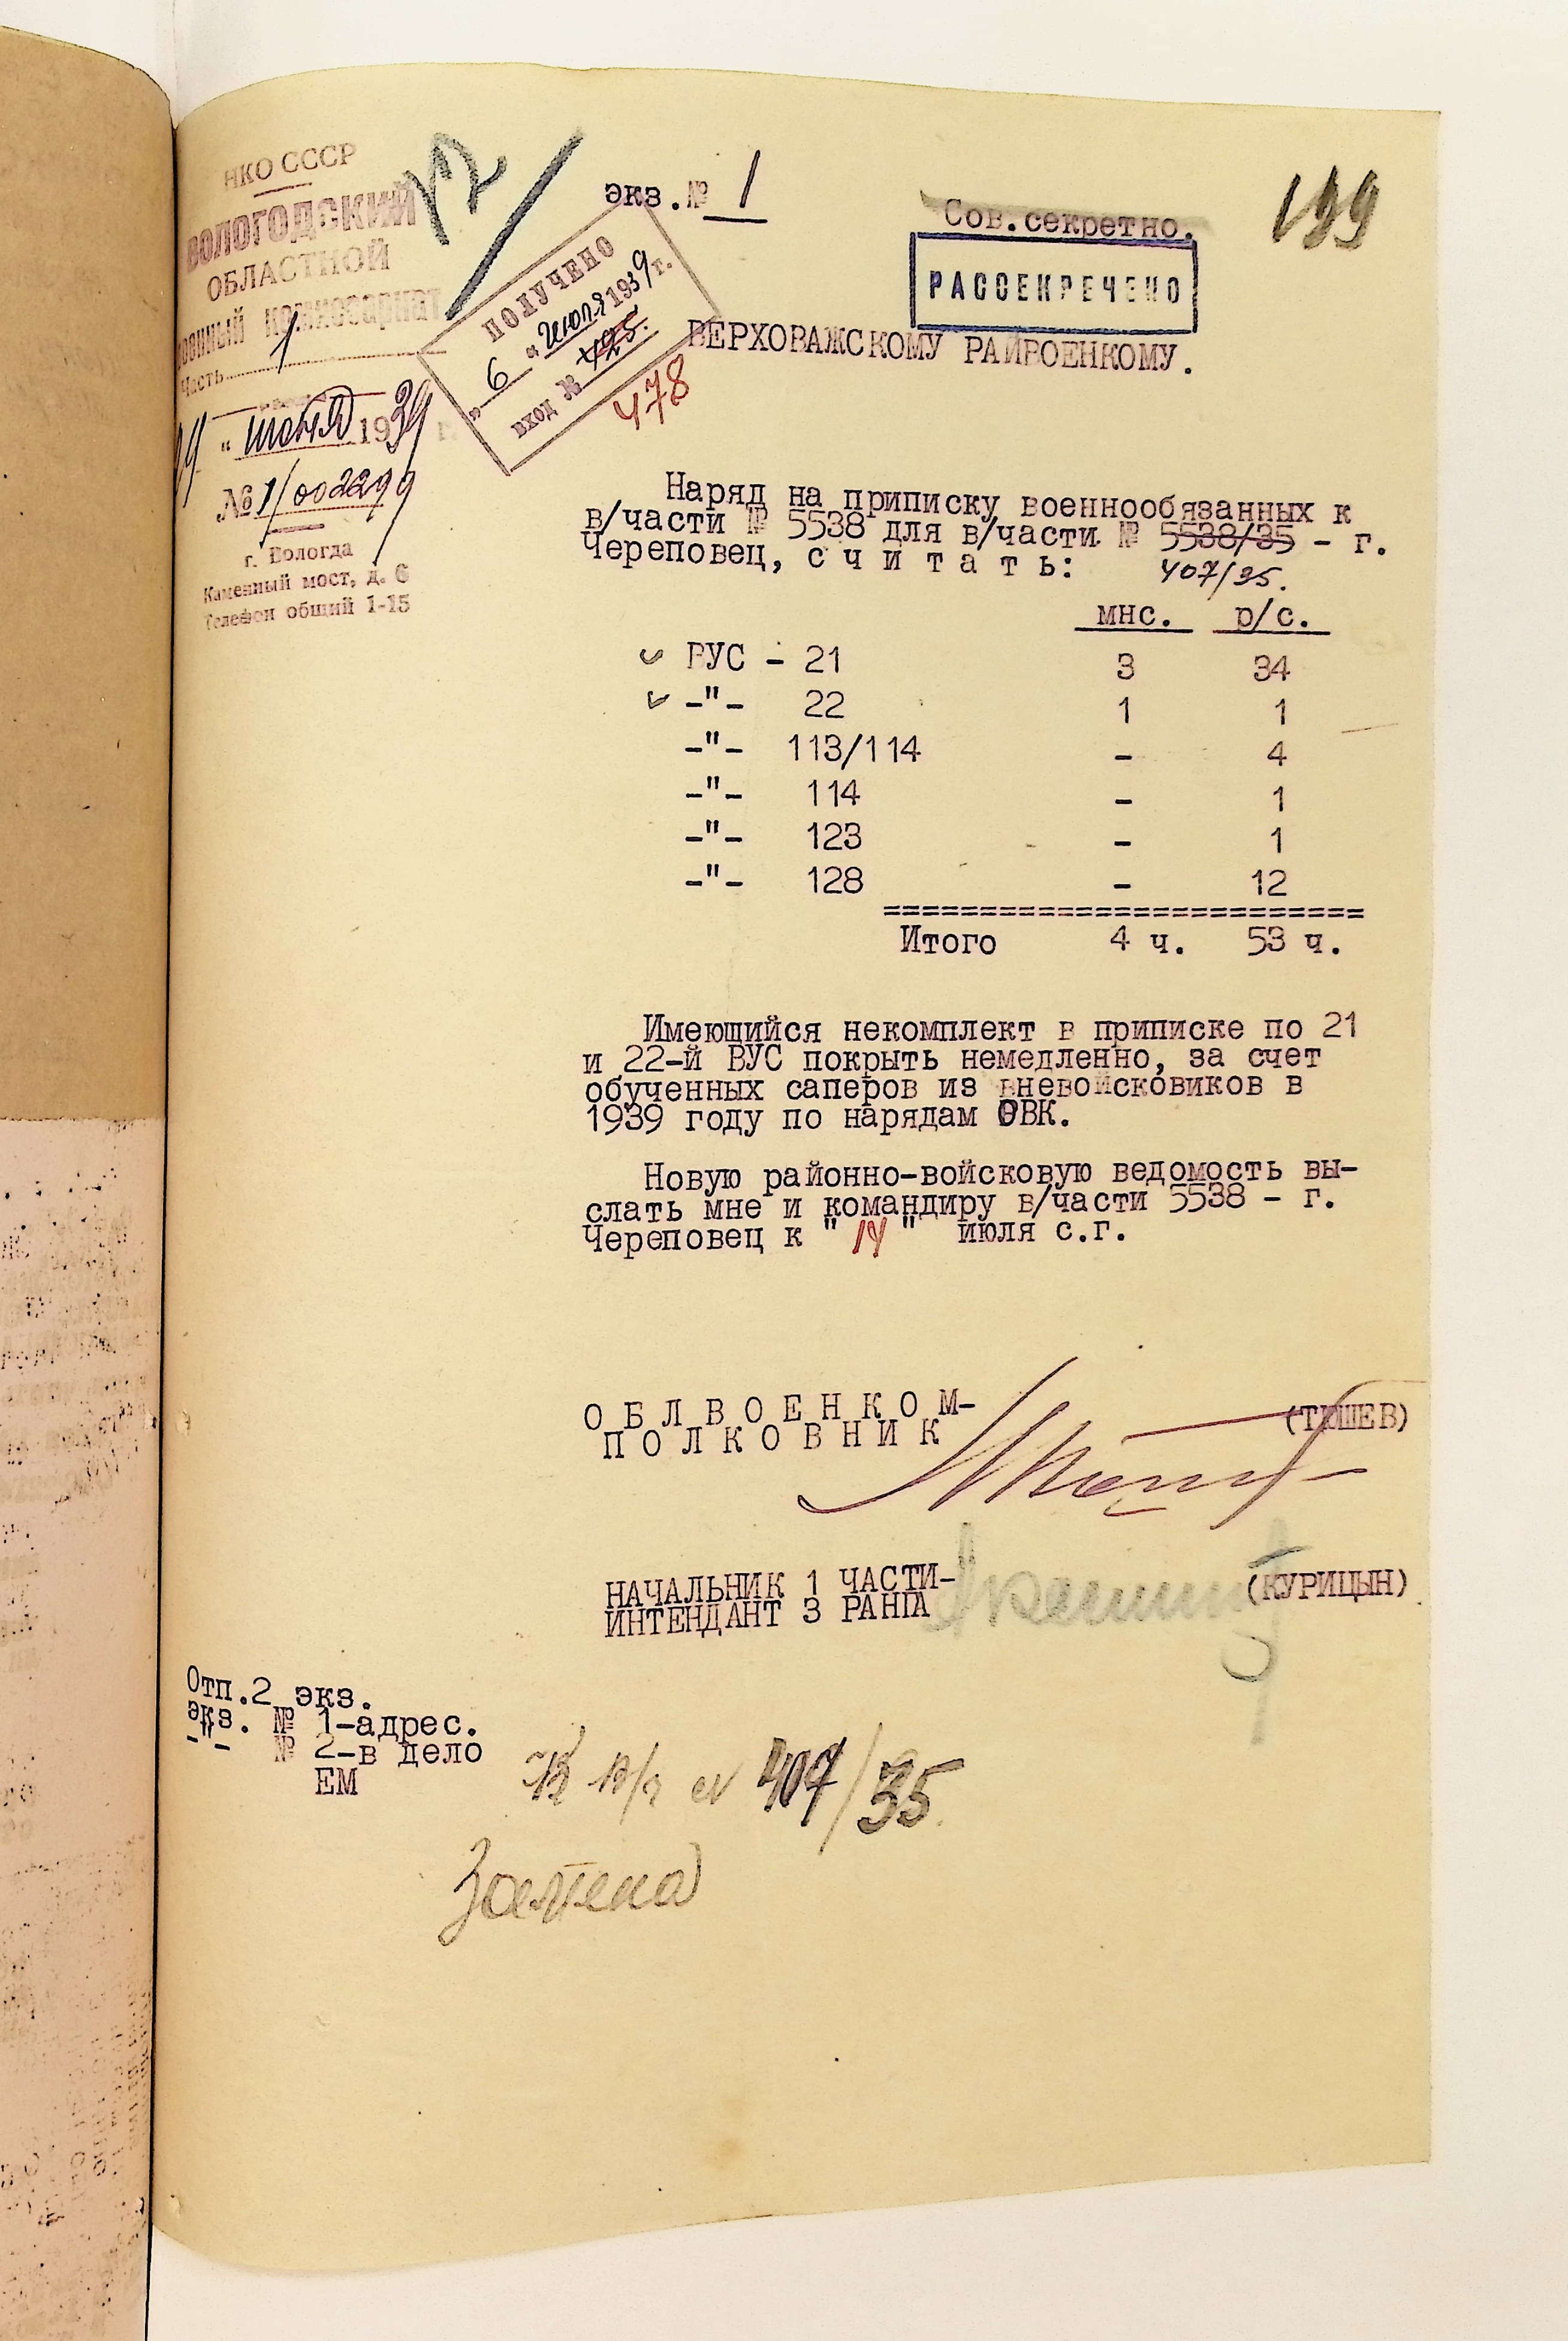 НКО СССР
ВОЛОГОДСКИЙ
ОБЛАСТНОЙ
военный комиссариат
Часть 1
" июня 1939 г.
№ 1/002299
г. Вологда
Каменный мост, д. 6
Телефон общий 1-15
экз.№ 1
Сов.секретно.
199
РАССЕКРЕЧЕНО
ПОЛУЧЕНО
"6" июля 1939 г.
вход № 425.
478
ВЕРХОВАЖСКОМУ РАЙВОЕНКОМУ.
Наряд на приписку военнообязанных к
в/части № 5538 для в/части № 5538/35 - г.
Череповец, с ч и т а т ь:
407/35.
мнс. р/с.
ВУС - 21 3 34
-"- 22 1 1
-"- 113/114 - 4
-"- 114 - 1
-"- 123 - 1
-"- 128 - 12
=========================
Итого 4 ч. 53 ч.
Имеющийся некомплект в приписке по 21
и 22-й ВУС покрыть немедленно, за счет
обученных саперов из вневойсковиков в
1939 году по нарядам ОВК.
Новую районно-войсковую ведомость вы-
слать мне и командиру в/части 5538 - г.
Череповец к "14" июля с.г.
О Б Л В О Е Н К О М-
П О Л К О В Н И К
(ТЮШЕВ)
НАЧАЛЬНИК 1 ЧАСТИ-
ИНТЕНДАНТ 3 РАНГА
(КУРИЦЫН)
Отп.2 экз.
экз. № 1-адрес.
-"- № 2-в дело
ЕМ
К в/ч № 407/35.